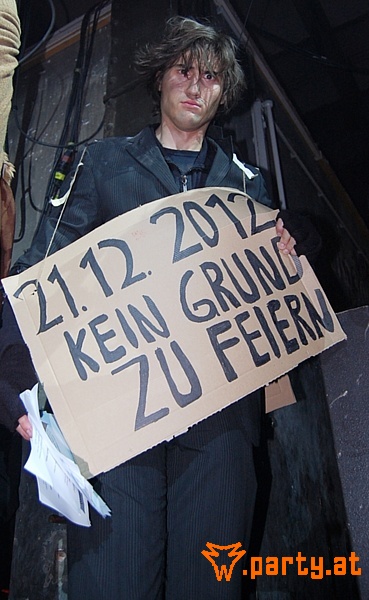 21.12.2012
KEIN GRUND
ZU FEIERN
w.party.at